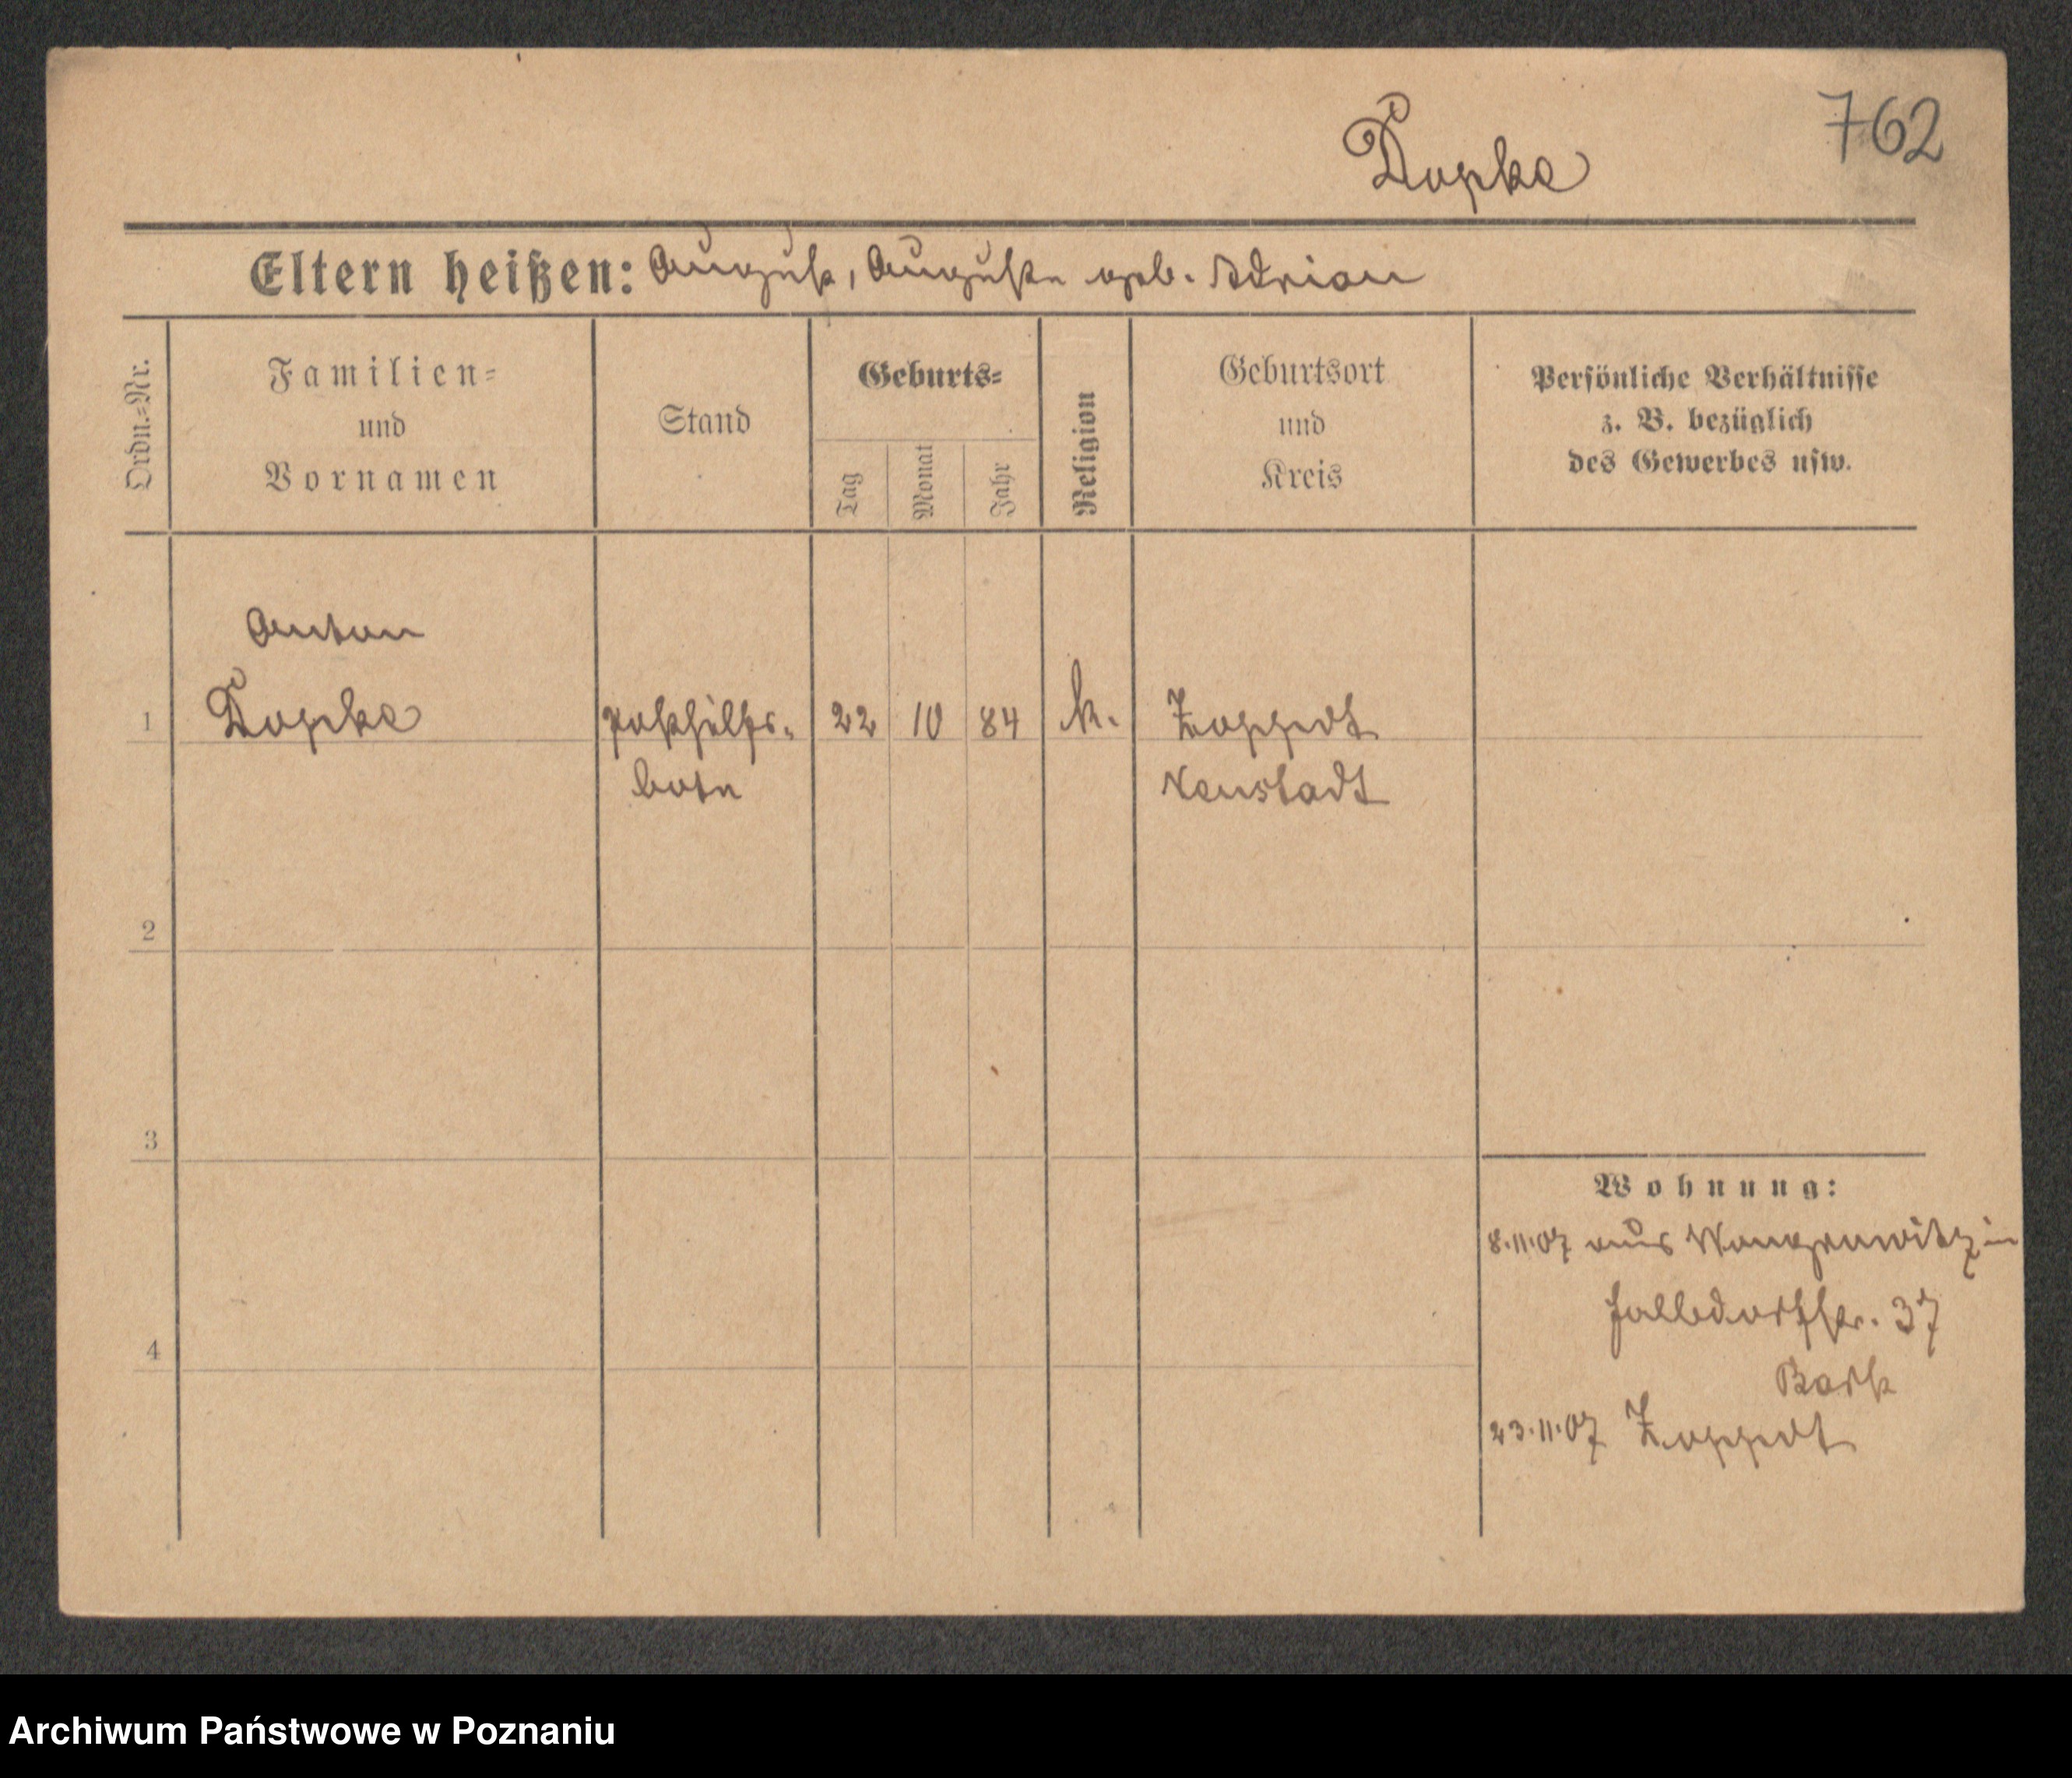 762
Dopke
Eltern heißen: August, Auguste geb. Adrian
Ordn.=Nr.
Familien=
und
Vornamen
Stand
Geburts=
Tag
Monat
Jahr
Religion
Geburtsort
und
Kreis
Persönliche Verhältnisse
z. B. bezüglich
des Gewerbes usw.
Anton
1 Dopke Posthilfs- 22 10 84 k. Zoppot
bote Neustadt
2
3
4
Wohnung:
8.11.07 aus in
37
23.11.07 Zoppot
Archiwum Państwowe w Poznaniu